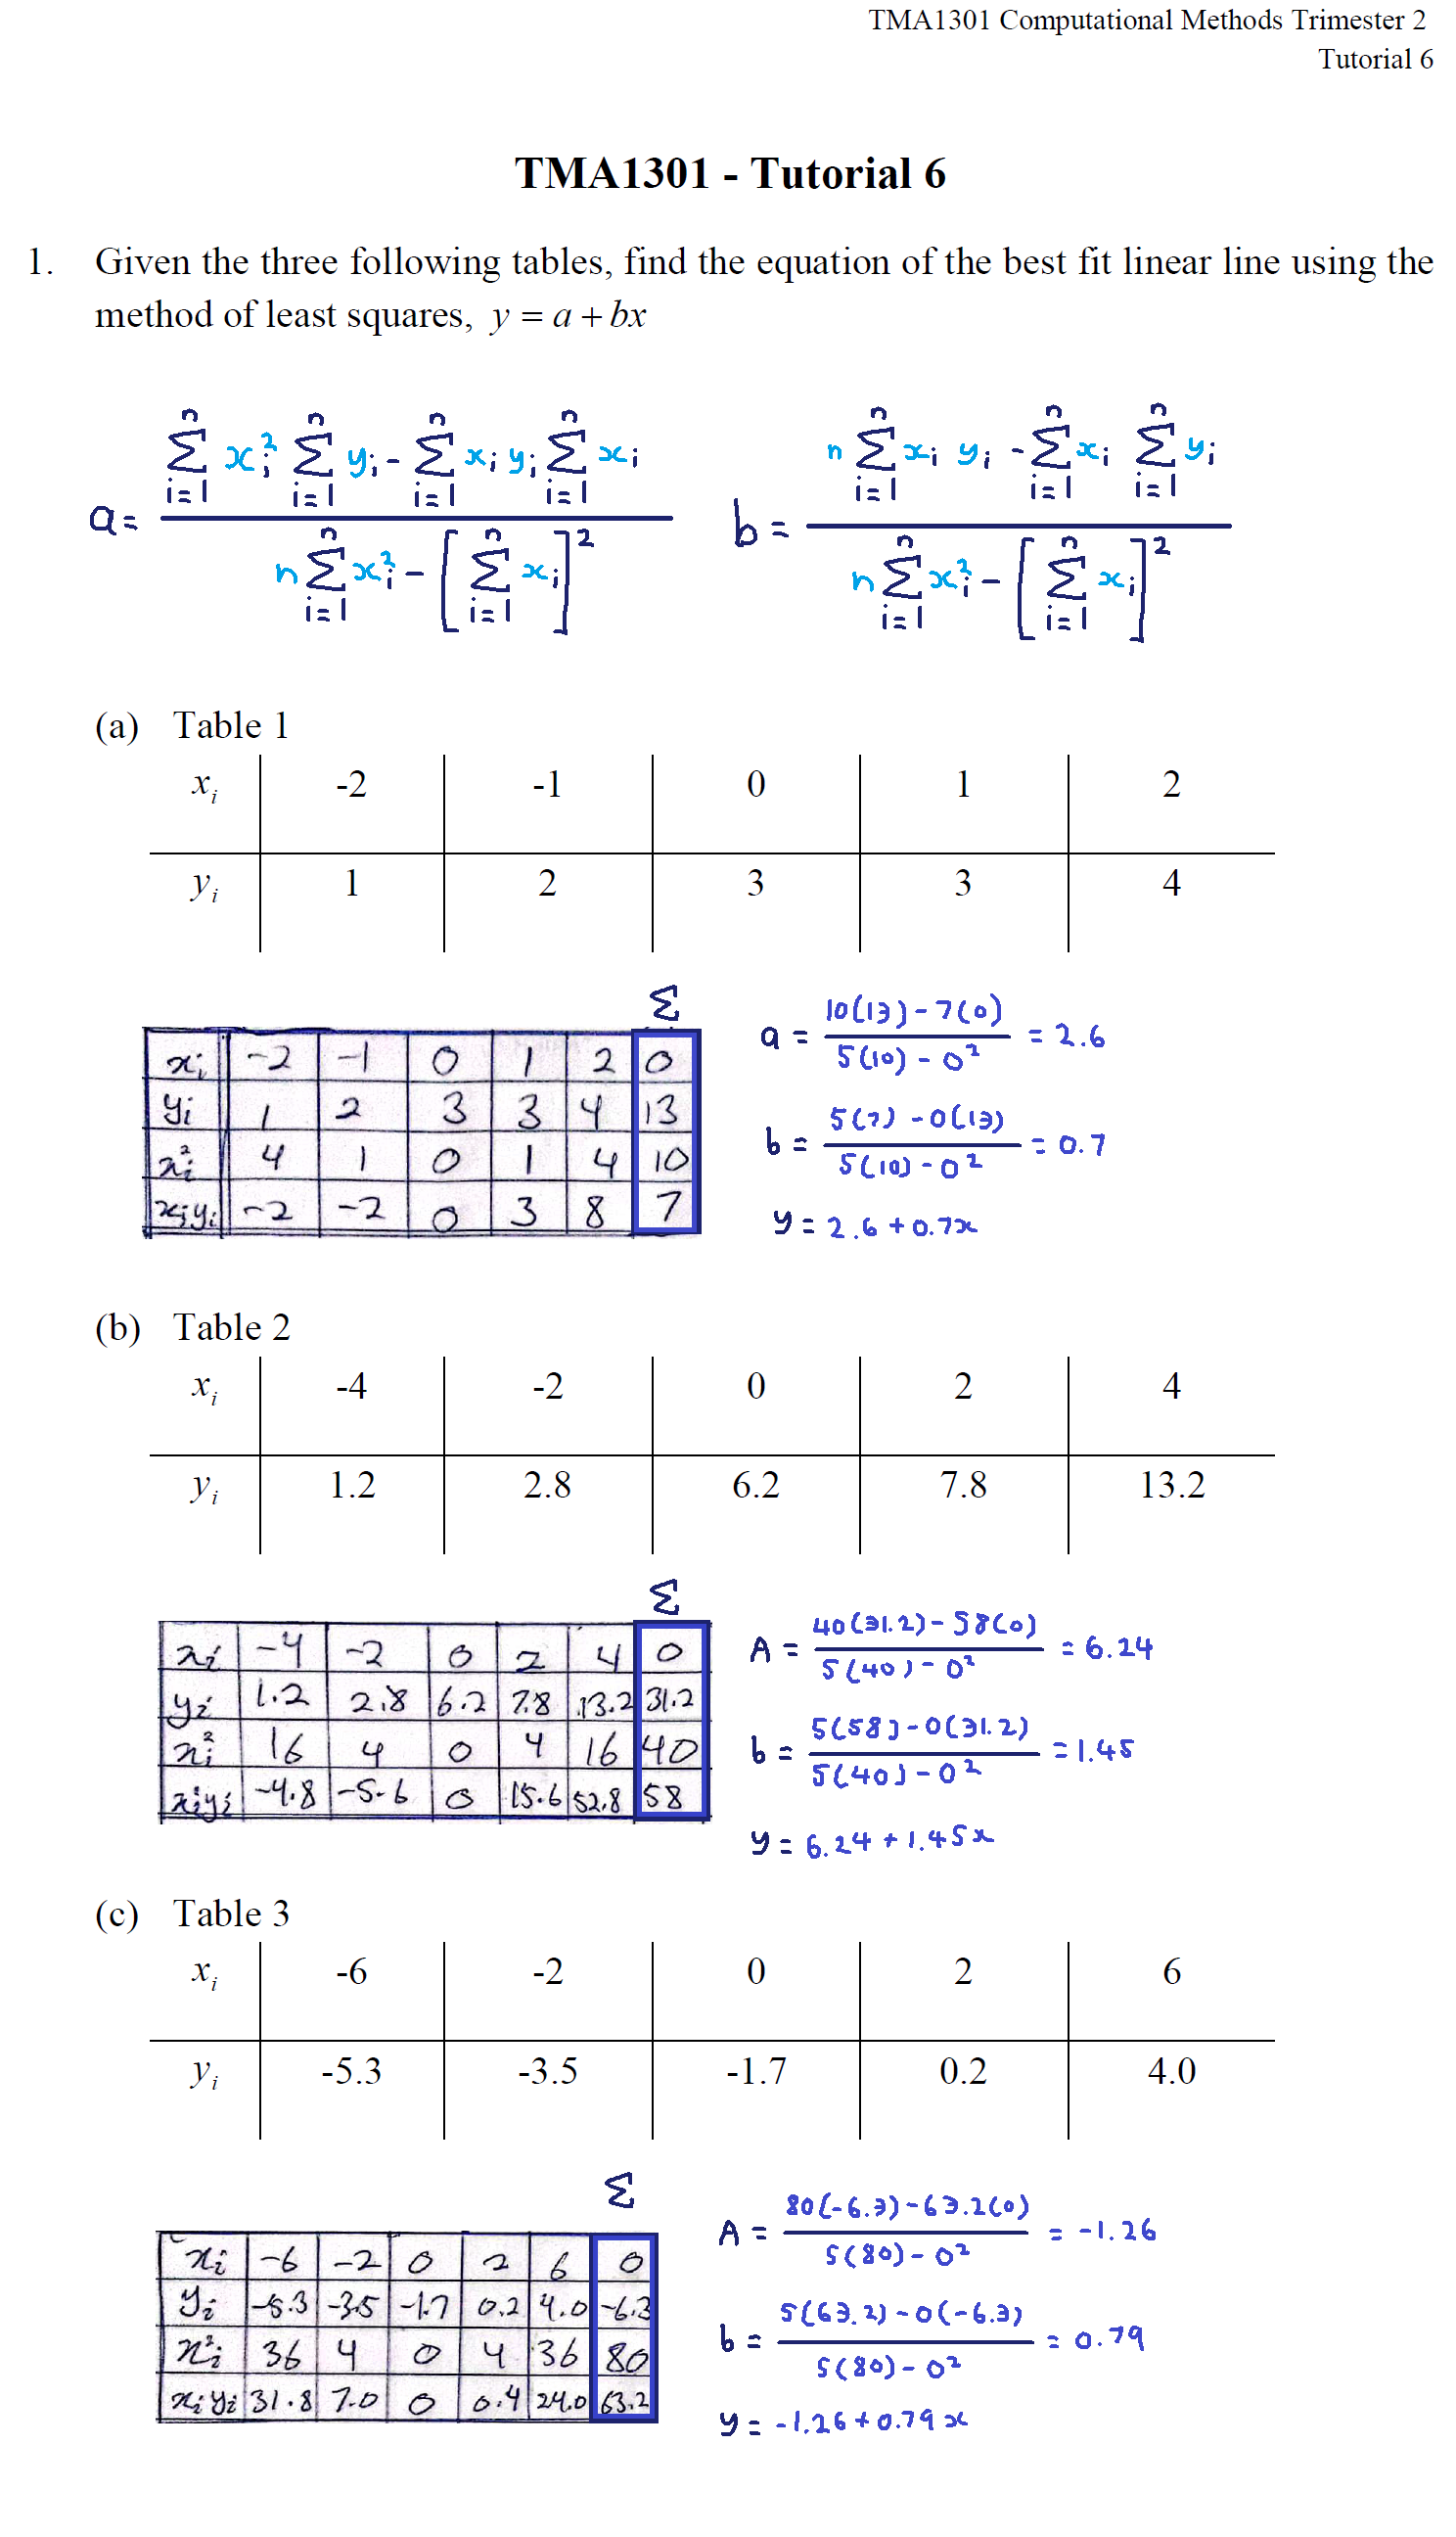 TMA1301 Computational Methods Trimester 2
Tutorial 6
TMA1301 - Tutorial 6
1. Given the three following tables, find the equation of the best fit linear line using the
method of least squares, y = a + bx
a = (∑_{i=1}^{n} x_i² ∑_{i=1}^{n} y_i - ∑_{i=1}^{n} x_i y_i ∑_{i=1}^{n} x_i) / (n ∑_{i=1}^{n} x_i² - [∑_{i=1}^{n} x_i]²)
b = (n ∑_{i=1}^{n} x_i y_i - ∑_{i=1}^{n} x_i ∑_{i=1}^{n} y_i) / (n ∑_{i=1}^{n} x_i² - [∑_{i=1}^{n} x_i]²)
(a) Table 1
x_i -2 -1 0 1 2
y_i 1 2 3 3 4
∑
x_i -2 -1 0 1 2 0
y_i 1 2 3 3 4 13
x_i² 4 1 0 1 4 10
x_i y_i -2 -2 0 3 8 7
a = (10(13) - 7(0)) / (5(10) - 0²) = 2.6
b = (5(7) - 0(13)) / (5(10) - 0²) = 0.7
y = 2.6 + 0.7x
(b) Table 2
x_i -4 -2 0 2 4
y_i 1.2 2.8 6.2 7.8 13.2
∑
x_i -4 -2 0 2 4 0
y_i 1.2 2.8 6.2 7.8 13.2 31.2
x_i² 16 4 0 4 16 40
x_i y_i -4.8 -5.6 0 15.6 52.8 58
A = (40(31.2) - 58(0)) / (5(40) - 0²) = 6.24
b = (5(58) - 0(31.2)) / (5(40) - 0²) = 1.45
y = 6.24 + 1.45x
(c) Table 3
x_i -6 -2 0 2 6
y_i -5.3 -3.5 -1.7 0.2 4.0
∑
x_i -6 -2 0 2 6 0
y_i -5.3 -3.5 -1.7 0.2 4.0 -6.3
x_i² 36 4 0 4 36 80
x_i y_i 31.8 7.0 0 0.4 24.0 63.2
A = (80(-6.3) - 63.2(0)) / (5(80) - 0²) = -1.26
b = (5(63.2) - 0(-6.3)) / (5(80) - 0²) = 0.79
y = -1.26 + 0.79x